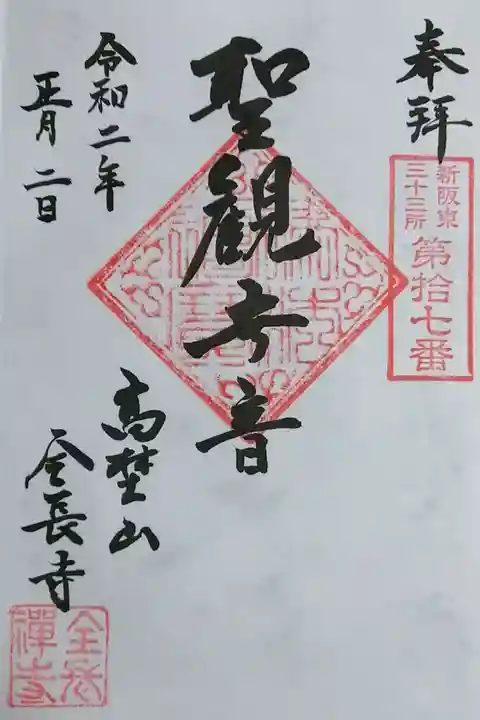 奉拝
新阪東
三十三所
第拾七番
聖観世音
高埜山
全長寺
令和二年
正月二日
全長
禪寺